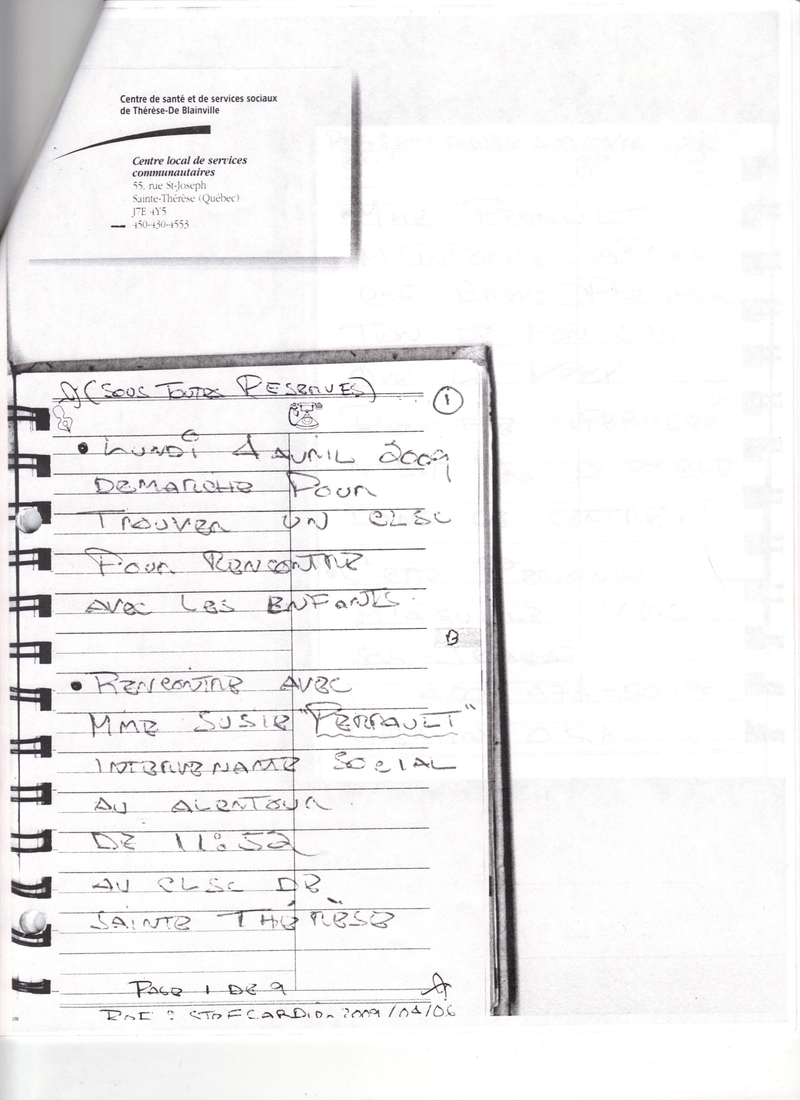 Centre de santé et de services sociaux
de Thérèse-De Blainville
Centre local de services
communautaires
55, rue St-Joseph
Sainte-Thérèse (Québec)
J7E 4Y5
450-430-4553
(SOUS TOUTES RESERVES)
1
• LUNDI 6 AVRIL 2009
DEMARCHE POUR
TROUVER UN CLSC
POUR RENCONTRE
AVEC LES ENFANTS
B
• RENCONTRE AVEC
MME SUSIE "PERRAULT"
INTERVENANTE SOCIAL
AU ALENTOUR
DE 11:52
AU CLSC DE
SAINTE THÉRÈSE
PAGE 1 DE 9
2009/04/06